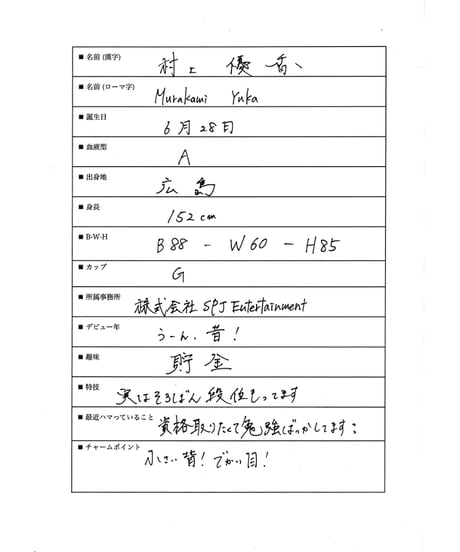 ■ 名前 (漢字) 村上 優香
■ 名前 (ローマ字) Murakami Yuka
■ 誕生日 6月28日
■ 血液型 A
■ 出身地 広島
■ 身長 152cm
■ B-W-H B88 - W60 - H85
■ カップ G
■ 所属事務所 株式会社 SPJ Entertainment
■ デビュー年 うーん、昔!
■ 趣味 貯金
■ 特技 実はそろばん段位もってます
■ 最近ハマっていること 資格取りたくて勉強ばっかしてます
■ チャームポイント 小さい背!でかい目!